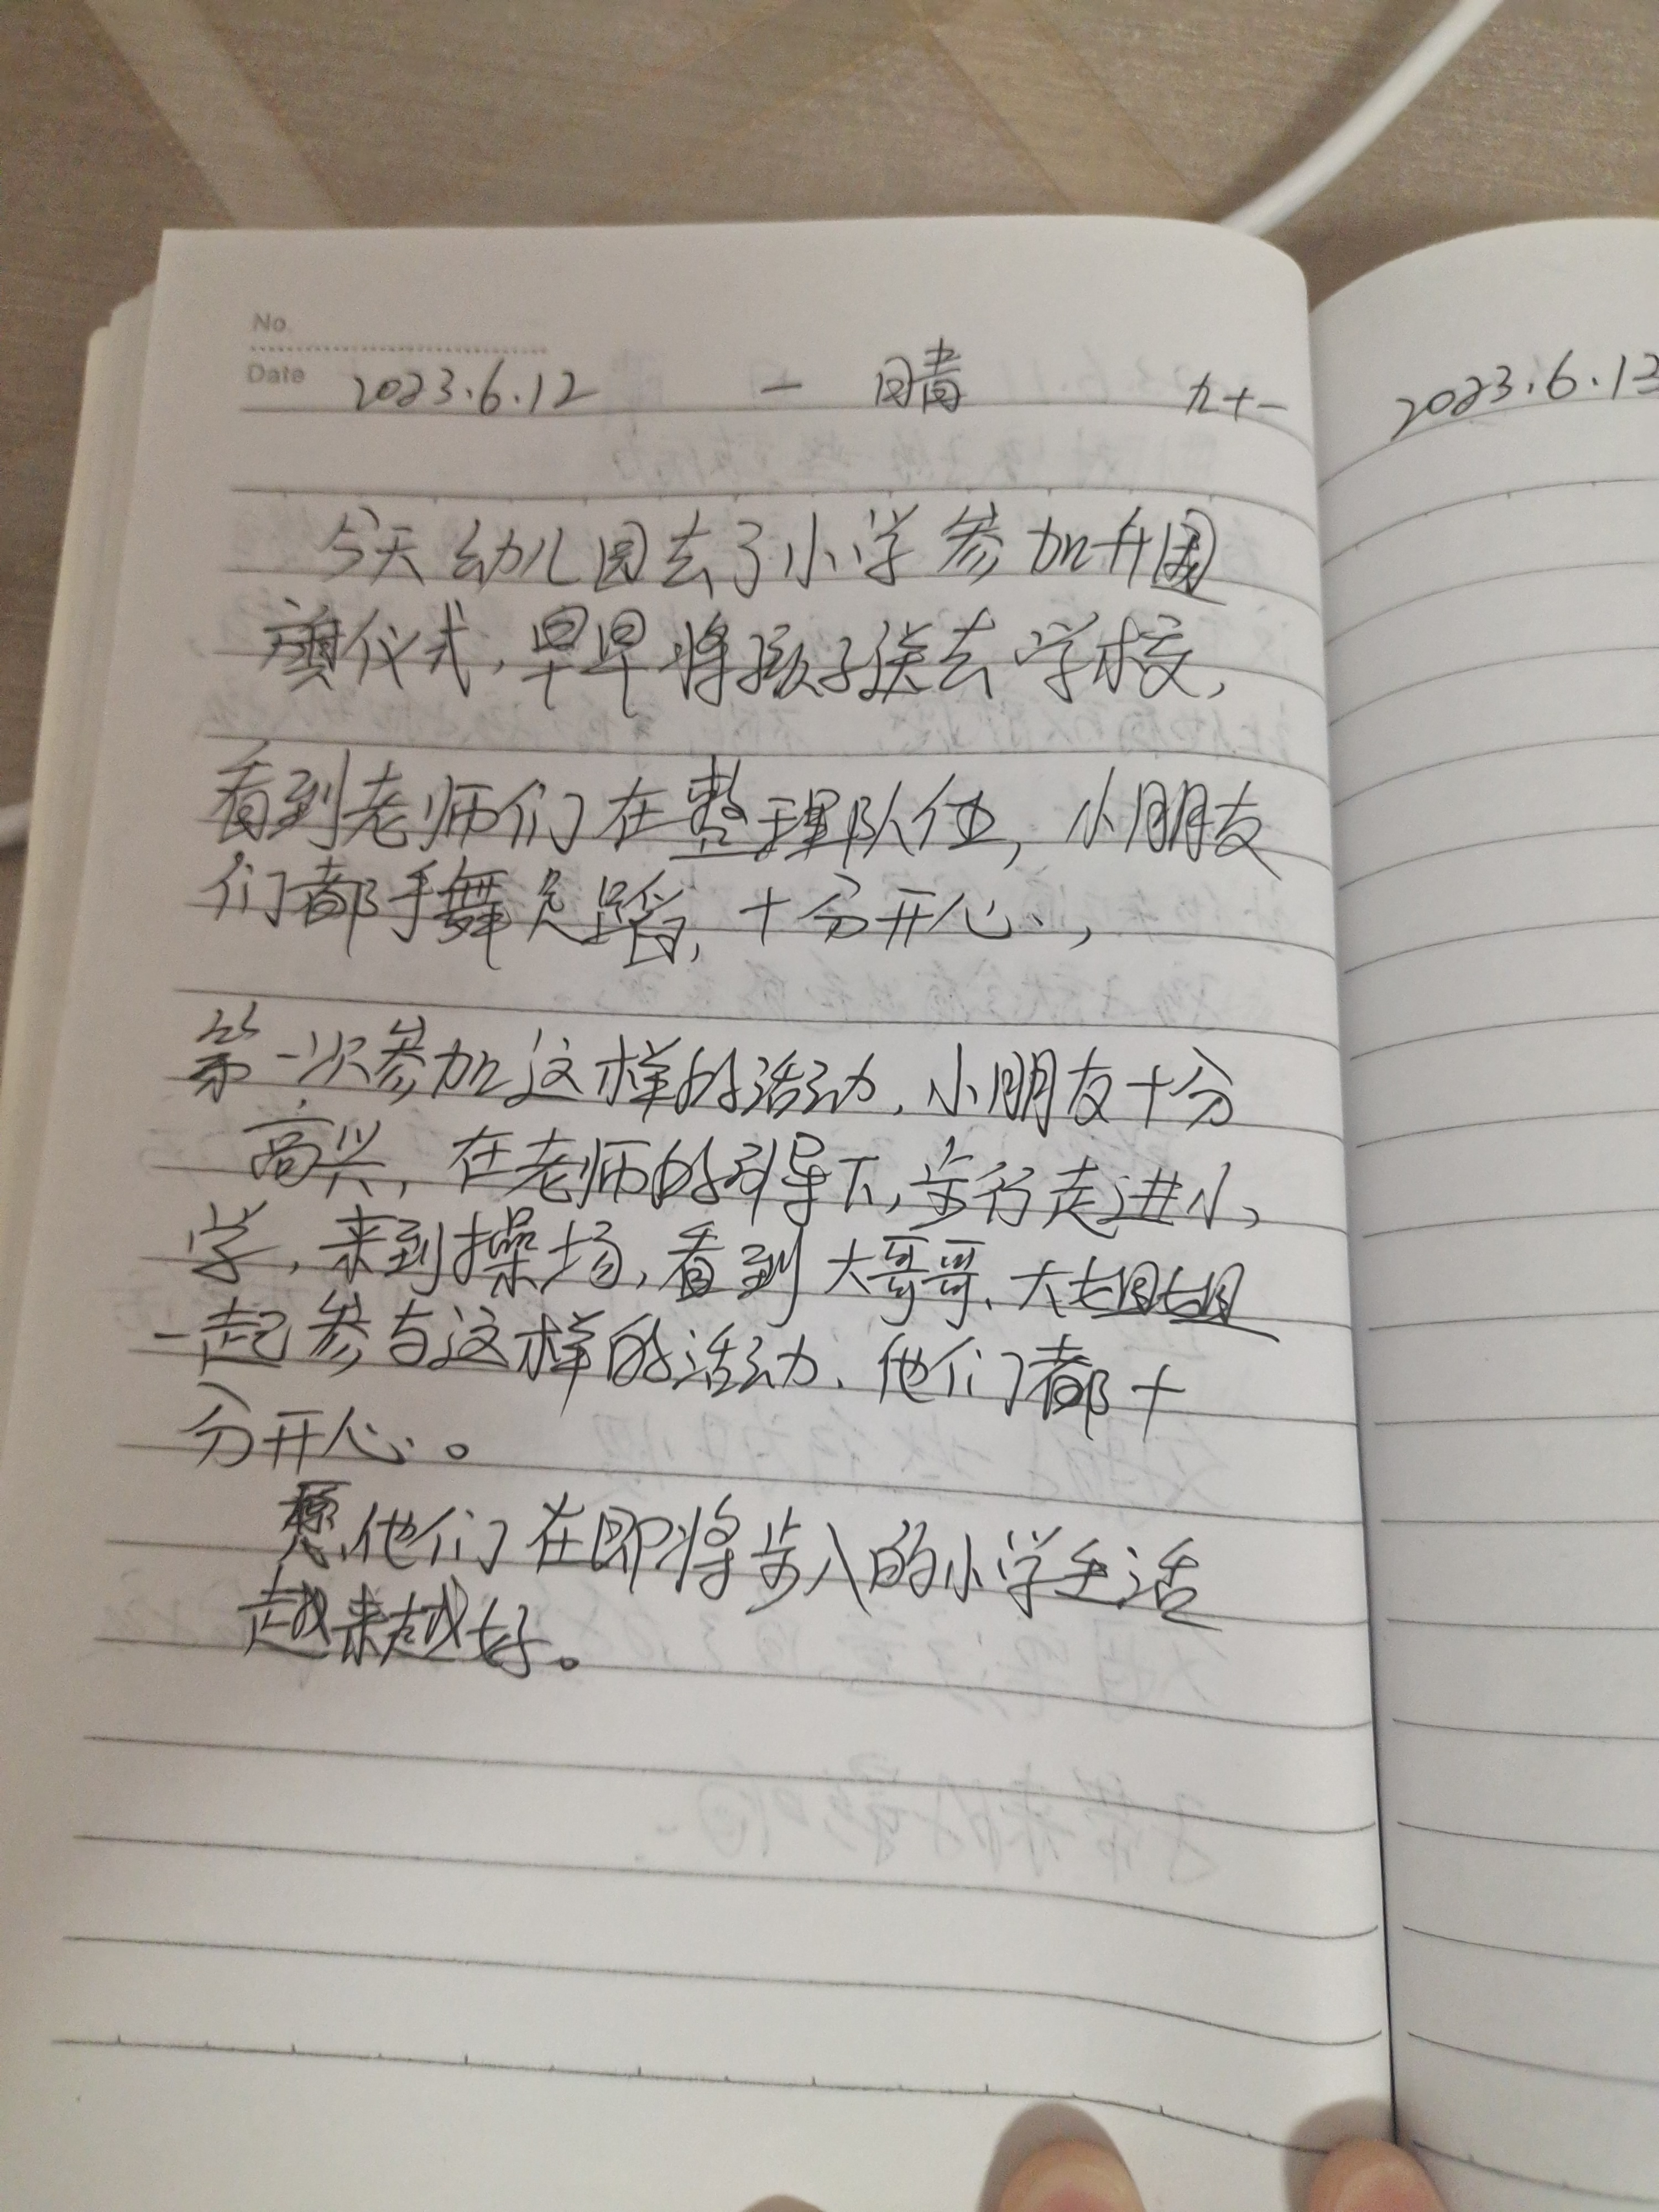 No.
Date 2023.6.12 一 晴 九十一
今天幼儿园去了小学参加升国
旗仪式,早早将孩子送去学校,
看到老师们在整理队伍,小朋友
们都手舞足蹈,十分开心,
第一次参加这样的活动,小朋友十分
高兴,在老师的引导下,步行走进小
学,来到操场,看到大哥哥、大姐姐
一起参与这样的活动、他们都十
分开心。
愿他们在即将步入的小学生活
越来越好。
2023.6.13